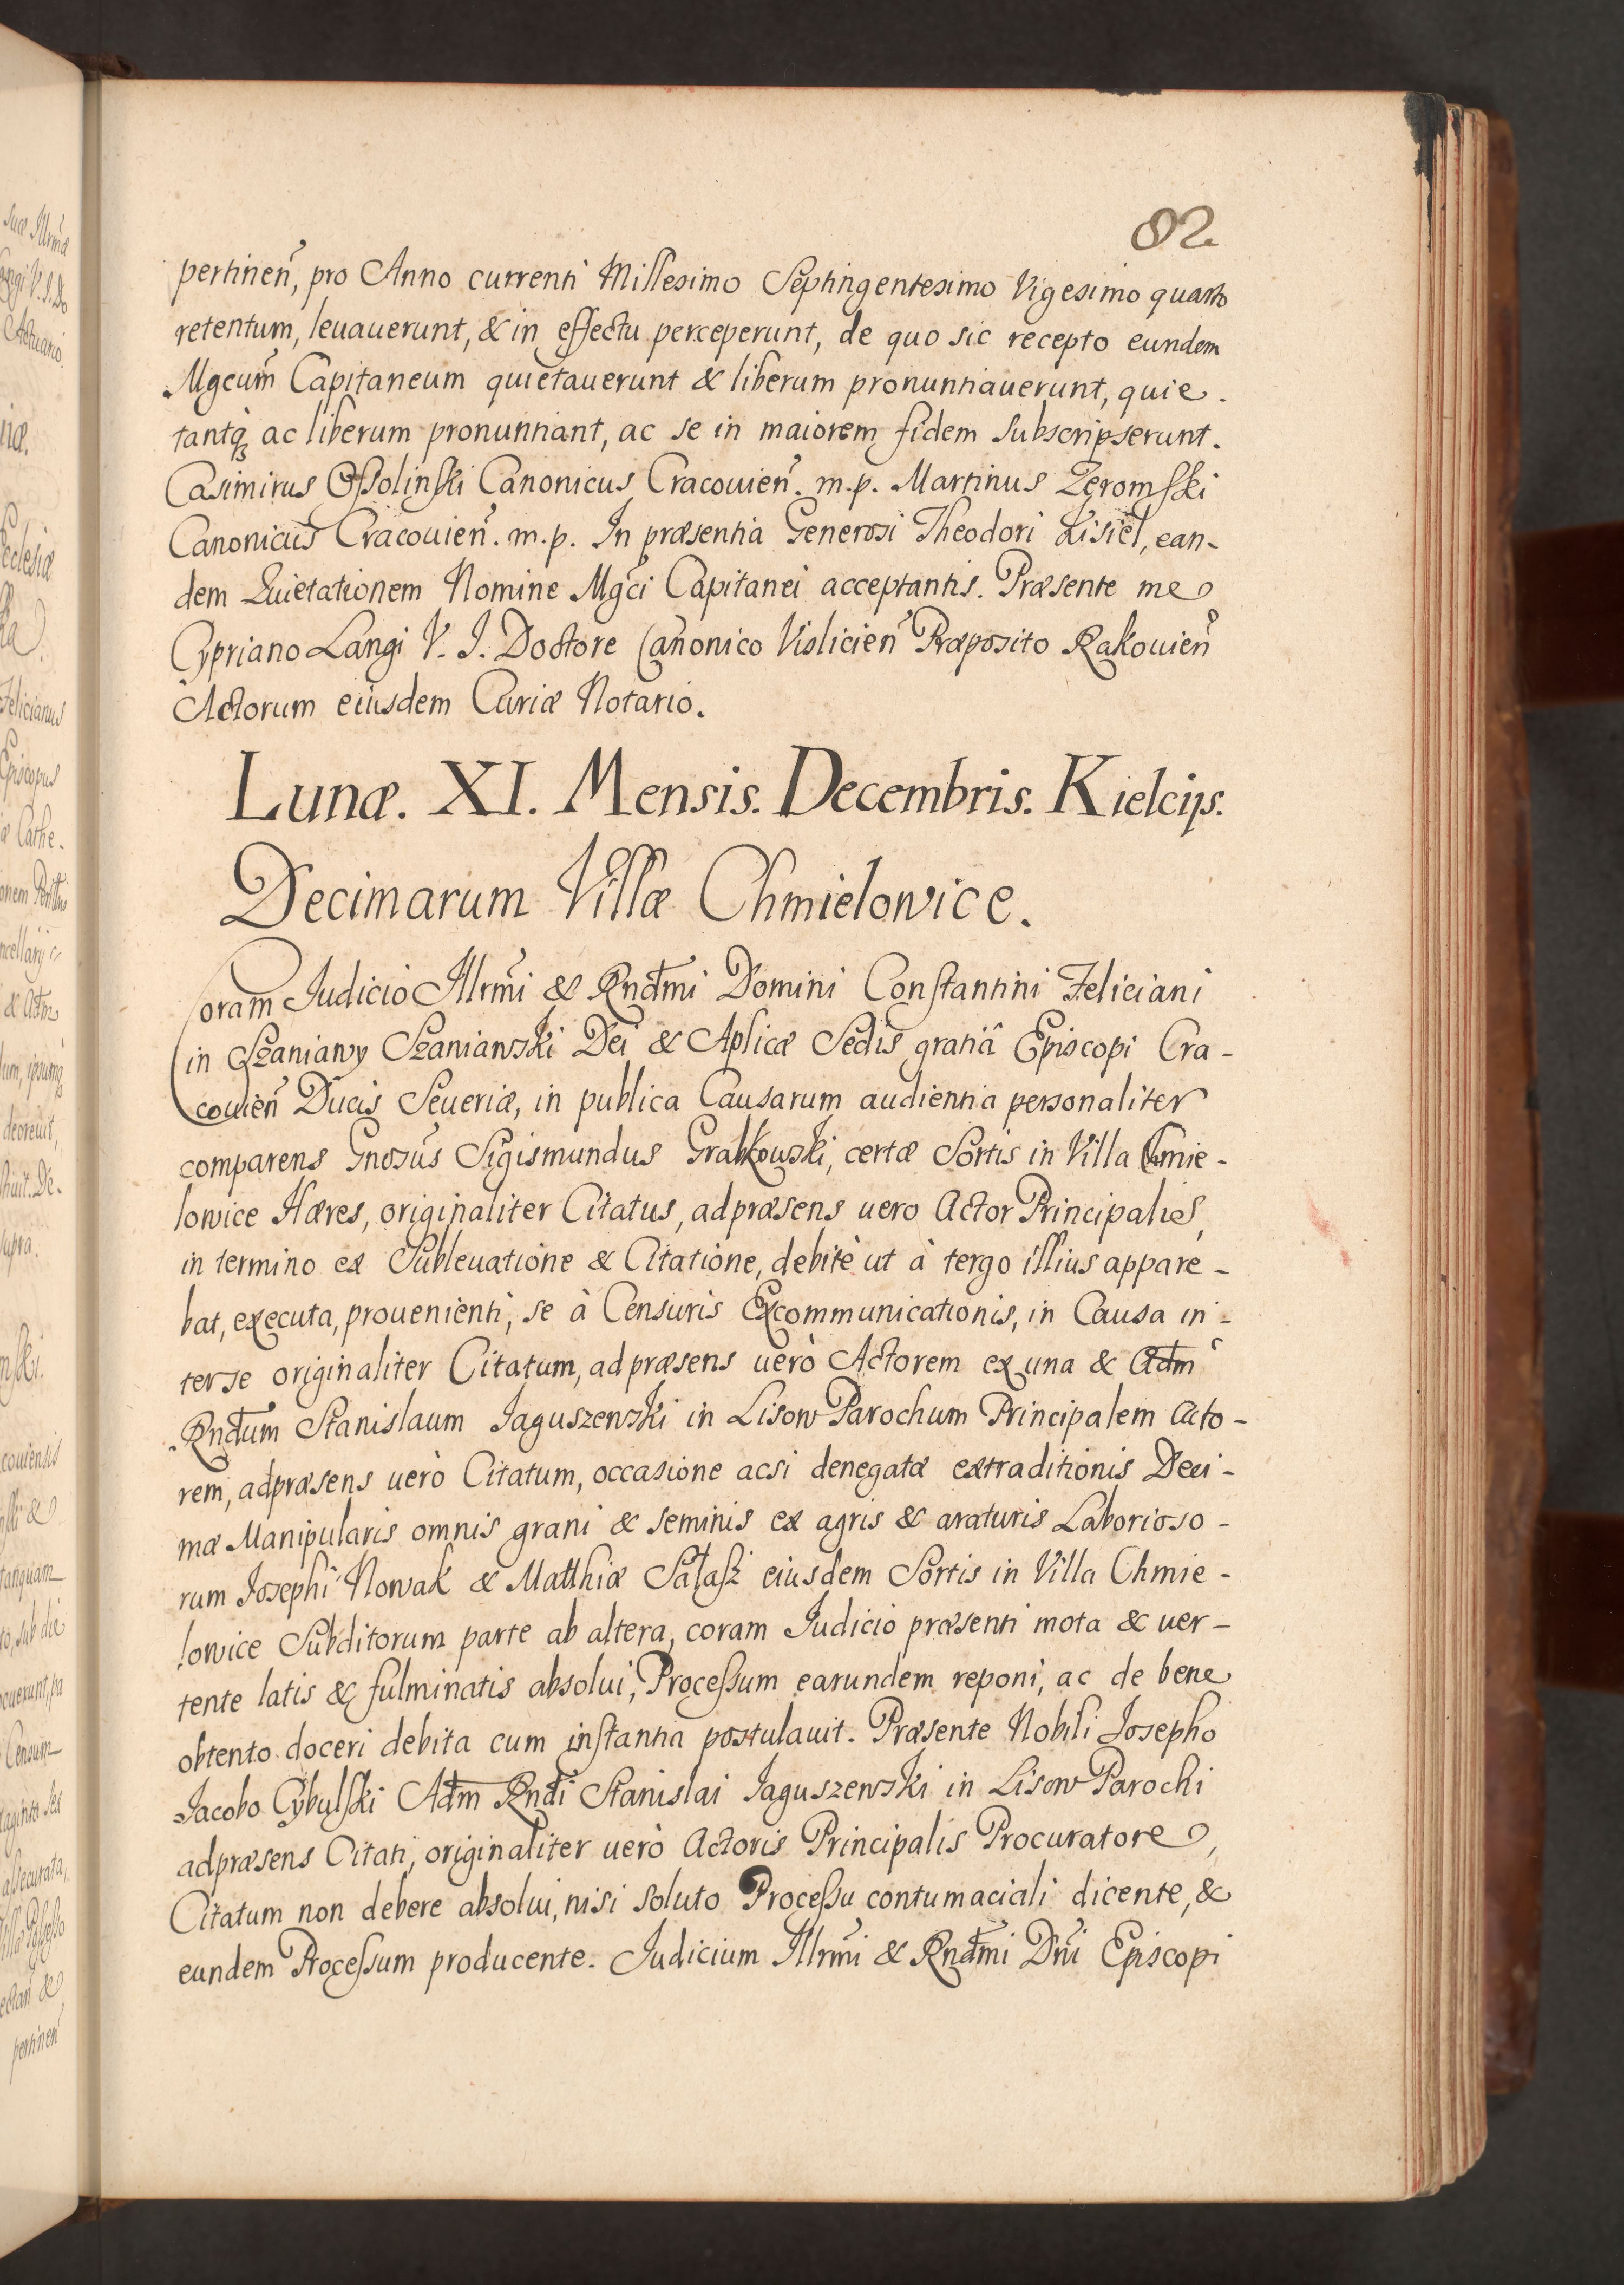 82
pertineñ, pro Anno currenti Millesimo Septingentesimo Vigesimo quarto
retentum, leuauerunt, & in effectu perceperunt, de quo sic recepto eundem
Mgcum̃ Capitaneum quietauerunt & liberum pronuntiauerunt, quie-
tantq₃ ac liberum pronuntiant, ac se in maiorem fidem subscripserunt.
Casimirus Ossolinski Canonicus Cracouień. m.p. Martinus Zeromski
Canonicus Cracouień. m.p. In præsentia Generosi Theodori Kisiel, ean-
dem Quietationem Nomine Mgci Capitanei acceptantis. Præsente me
Cypriano Langi V. J. Doctore Canonico Vislicień Præposito Rakouień
Actorum eiusdem Curiæ Notario.
Lunæ. XI. Mensis. Decembris. Kielcijs.
Decimarum Villæ Chmielowice.
Coram Judicio Illrmi & Rndmi Domini Constantini Feliciani
in Szaniawy Szaniawski Dei & Aplicæ Sedis gratiâ Episcopi Cra-
couień Ducis Seueriæ, in publica Causarum audientia personaliter
comparens Gnosus Sigismundus Grabkowski, certæ Sortis in Villa Chmie-
lowice Hæres, originaliter Citatus, adpræsens uero Actor Principalis,
in termino ex Subleuatione & Citatione, debitè ut à tergo illius appare-
bat, executa, prouenienti, se à Censuris Excommunicationis, in Causa in-
ter se originaliter Citatum, ad præsens uerò Actorem ex una & Adm
Rndum Stanislaum Jaguszewski in Lisow Parochum Principalem Acto-
rem, adpræsens uerò Citatum, occasione acsi denegatæ extraditionis Deci-
mæ Manipularis omnis grani & seminis ex agris & araturis Laborioso-
rum Josephi Nowak & Matthiæ Sałasz eiusdem Sortis in Villa Chmie-
lowice Subditorum parte ab altera, coram Judicio præsenti mota & uer-
tente latis & fulminatis absolui, Processum earundem reponi, ac de bene
obtento doceri debita cum instantia postulauit. Præsente Nobili Josepho
Jacobo Cybulski Adm Rndi Stanislai Jaguszewski in Lisow Parochi
adpræsens Citati, originaliter uerò Actoris Principalis Procuratore,
Citatum non debere absolui, nisi soluto Processu contumaciali dicente, &
eundem Processum producente. Judicium Illrmi & Rndmi Dni Episcopi